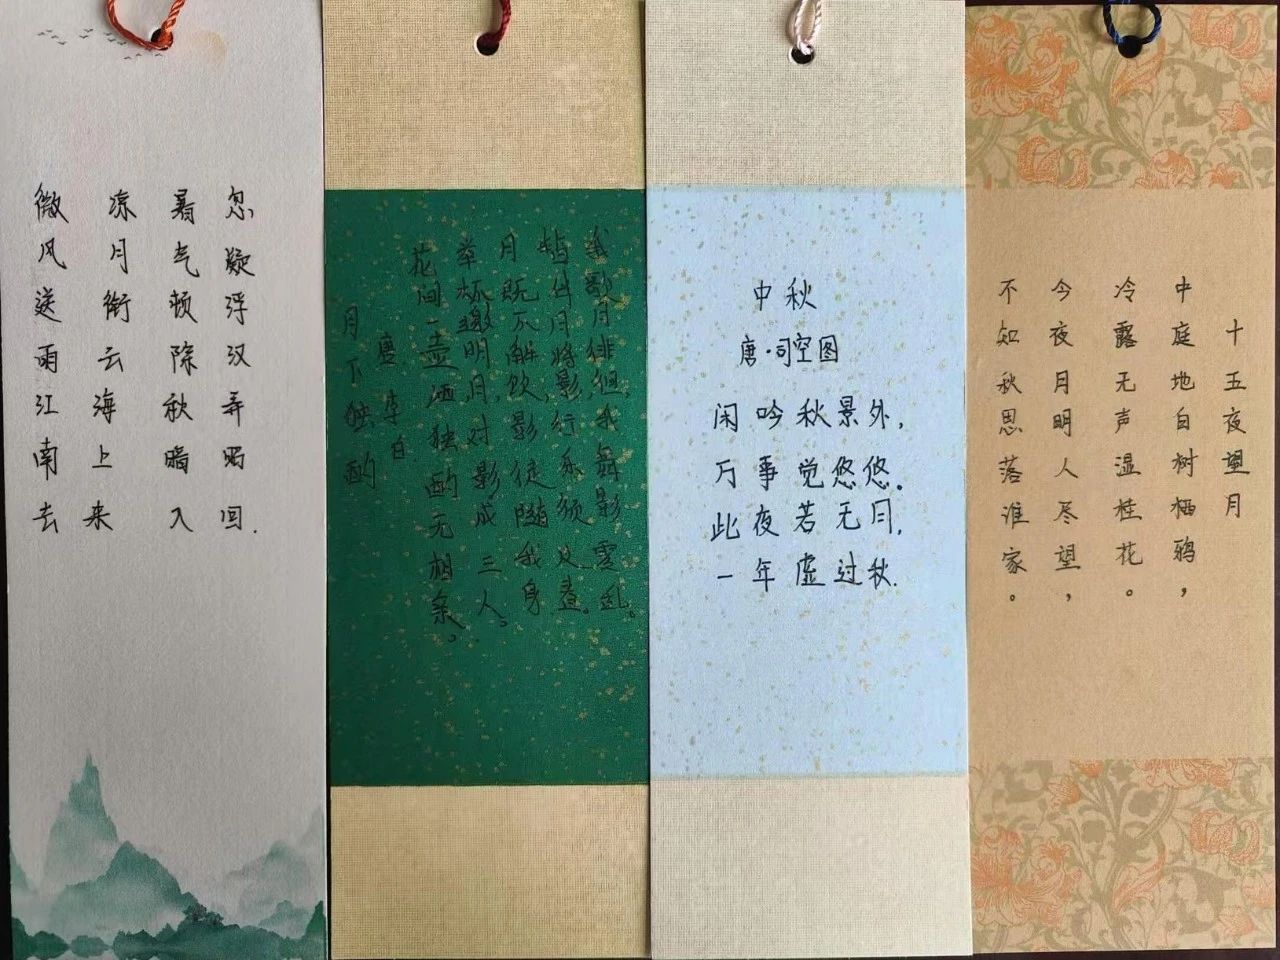 微风送雨江南去
凉月衔云海上来
暑气顿除秋暗入
忽疑浮汉弄回.
月下独酌
唐 李白
花间一壶酒独酌无相亲。
举杯邀明月,对影成三人。
月既不解饮,影徒随我身。
暂伴月将影,行乐须及春。
我歌月徘徊,我舞影零乱。
中秋
唐·司空图
闲吟秋景外,
万事觉悠悠。
此夜若无月,
一年虚过秋.
十五夜望月
中庭地白树栖鸦,
冷露无声湿桂花。
今夜月明人尽望,
不知秋思落谁家。